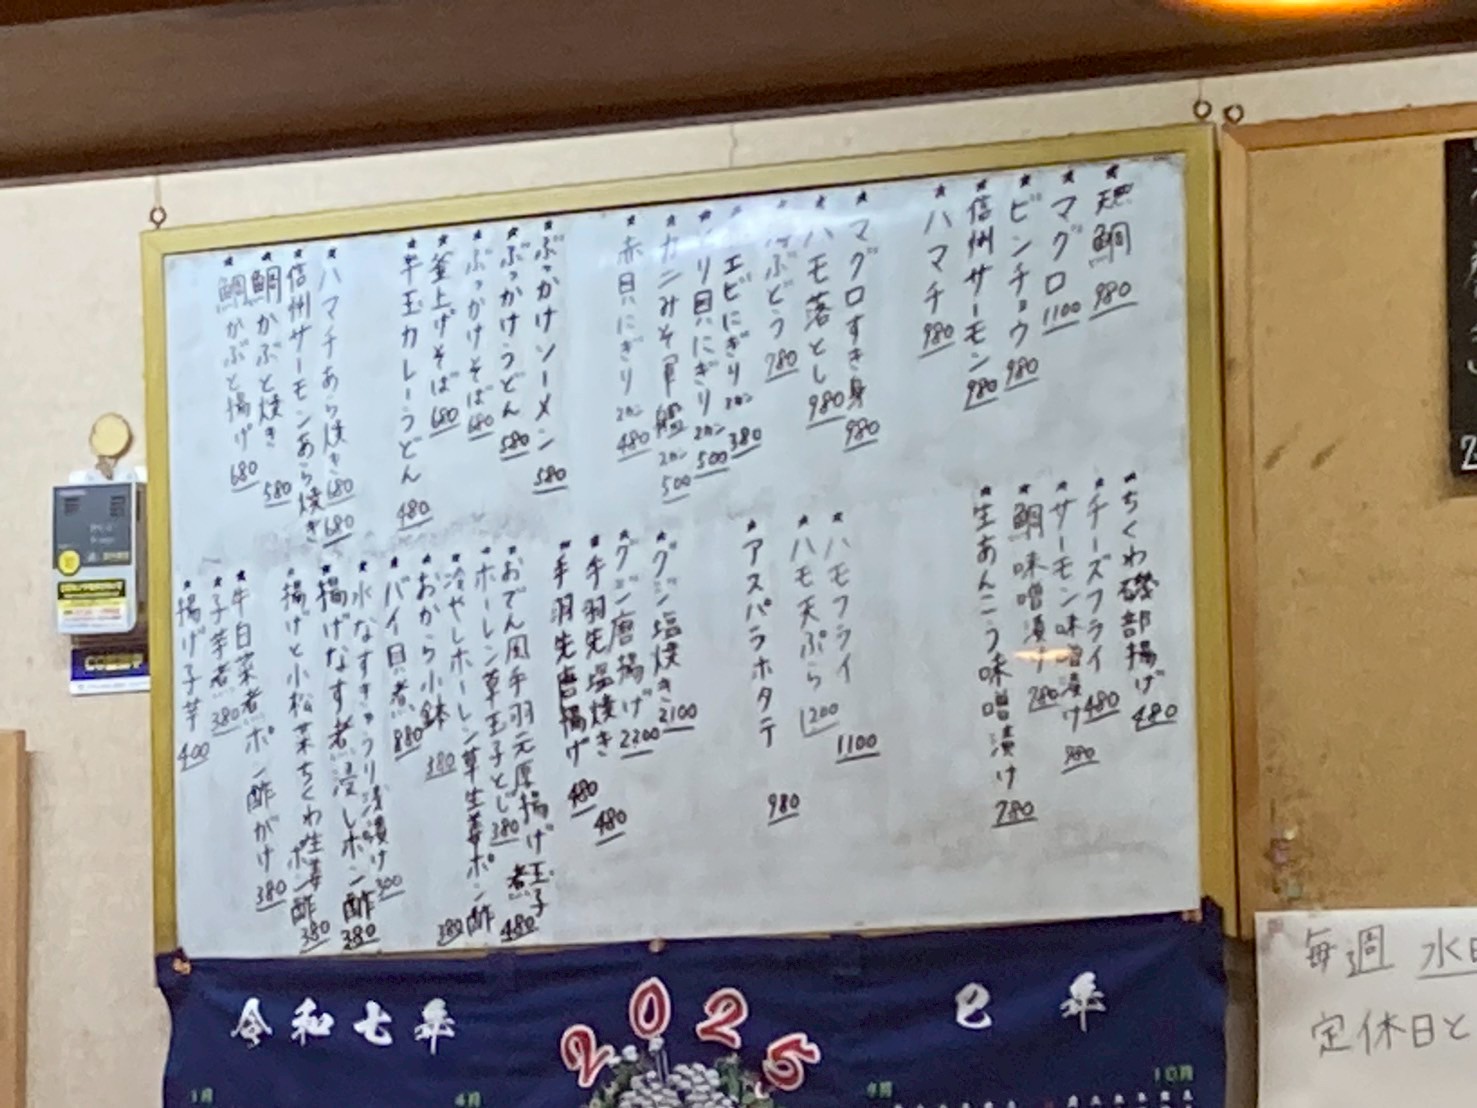 天然鯛 980
マグロ 1100
ビンチョウ 980
信州サーモン 980
ハマチ 980
マグロすき身 980
ハモ落とし 980
ぶどう 780
エビにぎり 2カン 380
り貝にぎり 2カン 500
カニみそ軍艦 2カン 500
赤貝にぎり 2カン 480
ぶっかけソーメン 580
ぶっかけうどん 580
ぶっかけそば 680
釜上げそば 680
半玉カレーうどん 480
ハマチあら焼き 680
信州サーモンあら焼き 680
鯛かぶと焼き 580
鯛かぶと揚げ 680
ちくわ磯部揚げ 480
チーズフライ 480
サーモン味噌漬け 980
鯛味噌漬け 780
生あんこう味噌漬け 780
ハモフライ 1100
ハモ天ぷら 1200
アスパラホタテ 980
グジ塩焼き 2100
グジ唐揚げ 2200
手羽先塩焼き 480
手羽先唐揚げ 480
おでん風手羽元厚揚げ玉子煮 480
ホーレン草玉子とじ 380
冷やしホーレン草生姜ポン酢 380
おから小鉢 380
バイ貝煮 880
水なすきゅうり浅漬け 300
揚げなす煮浸しポン酢 380
揚げと小松菜ちくわ生姜ポン酢 380
牛白菜煮ポン酢がけ 380
子芋煮 380
揚げ子芋 400
令和七年
2025
巳年
1月
4月
10月
毎週 水
定休日と